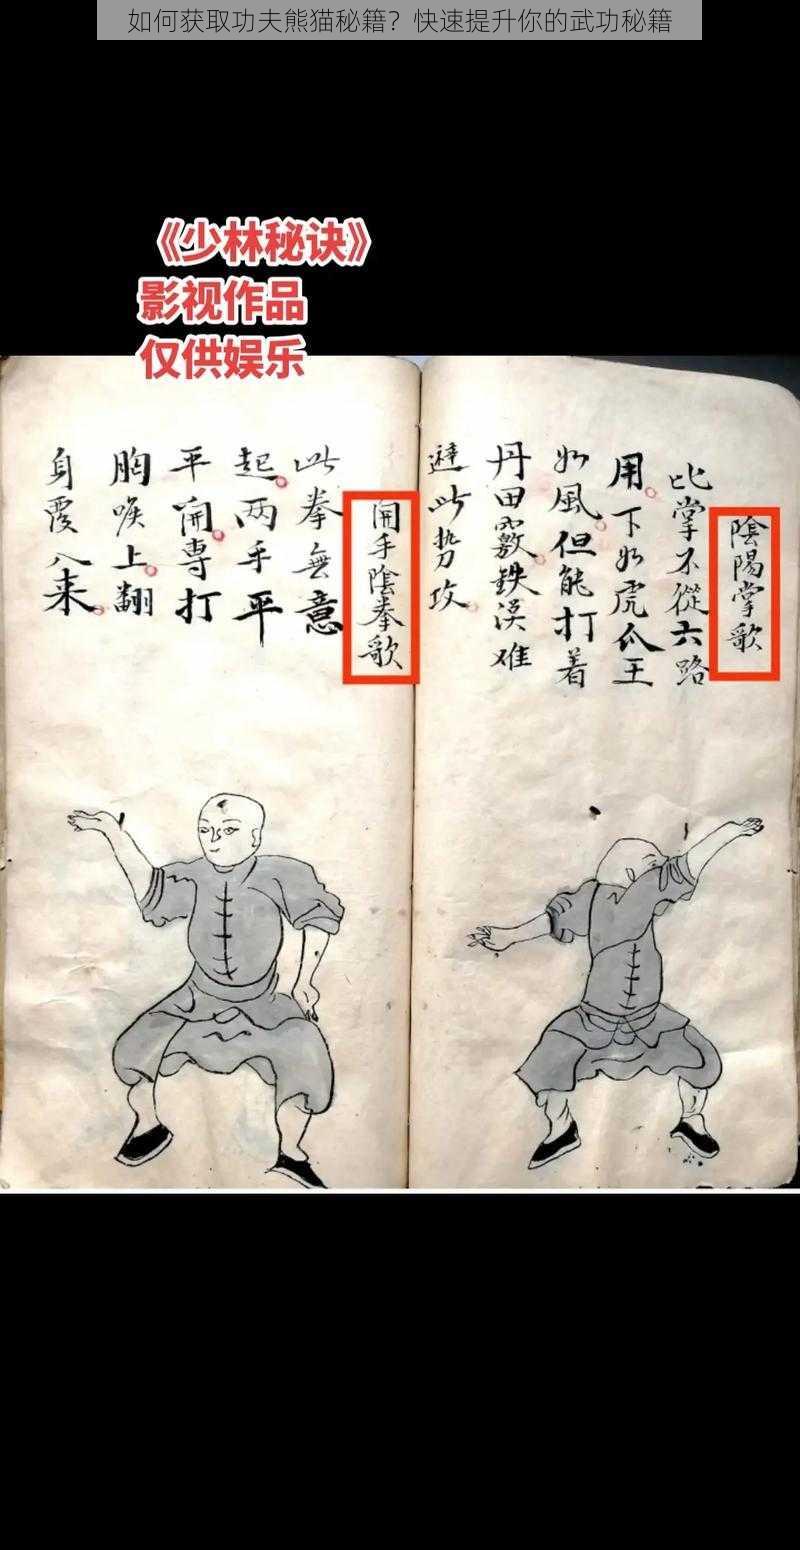 如何获取功夫熊猫秘籍？快速提升你的武功秘籍
《少林秘诀》
影视作品
仅供娱乐
陰陽掌歌
此掌不從六路
用下如虎爪王
如風但能打着
丹田竅鉄漢难
避此势攻
開手陰拳歌
此拳無意
起两手平
平開專打
胸喉上翻
身覆入来